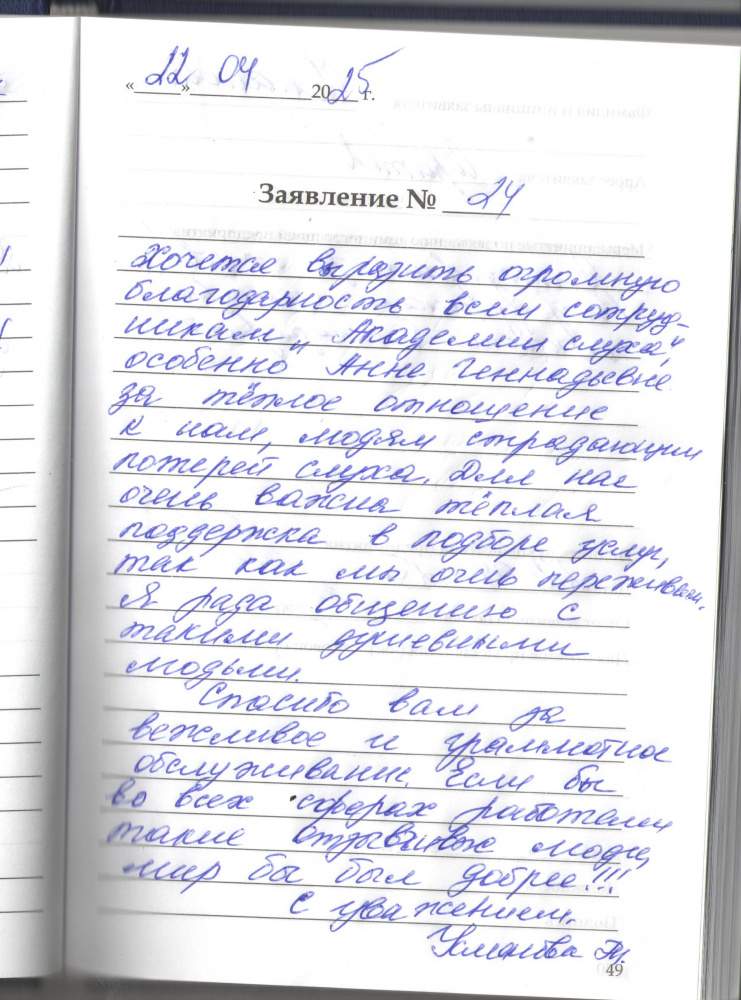 «22» 04 2025 г.
Заявление № 24
Хочется выразить огромную
благодарность всем сотруд-
никам „Академии слуха",
особенно Анне Геннадьевне
за тёплое отношение
к нам, людям страдающим
потерей слуха. Для нас
очень важна тёплая
поддержка в подборе услуг,
так как мы очень переживаем.
Я рада общению с
такими душевными
людьми.
Спасибо вам за
вежливое и грамотное
обслуживание. Если бы
во всех сферах работали
такие отзывчивые люди,
мир бы был добрее!!!
С уважением.
49